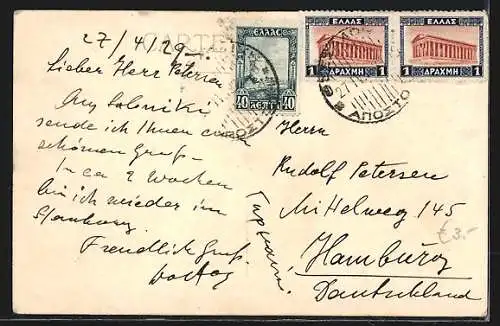 CARTE
27/4/29
Lieber Herr Petersen
Aus Saloniki
sende ich Ihnen einen
schönen Gruß.
In ca 2 Wochen
bin ich wieder im
Hamburg
Freundlich Gruß
ΕΛΛΑΣ
40 ΛΕΠΤ 40
ΕΛΛΑΣ
1 ΔΡΑΧΜΗ 1
ΕΛΛΑΣ
1 ΔΡΑΧΜΗ 1
ΑΠΟΣΤ
27
ΑΠΟΣΤΟ
Herrn
Rudolf Petersen
Mittelweg 145
Hamburg
Deutschland
Γερμανία
€3.-